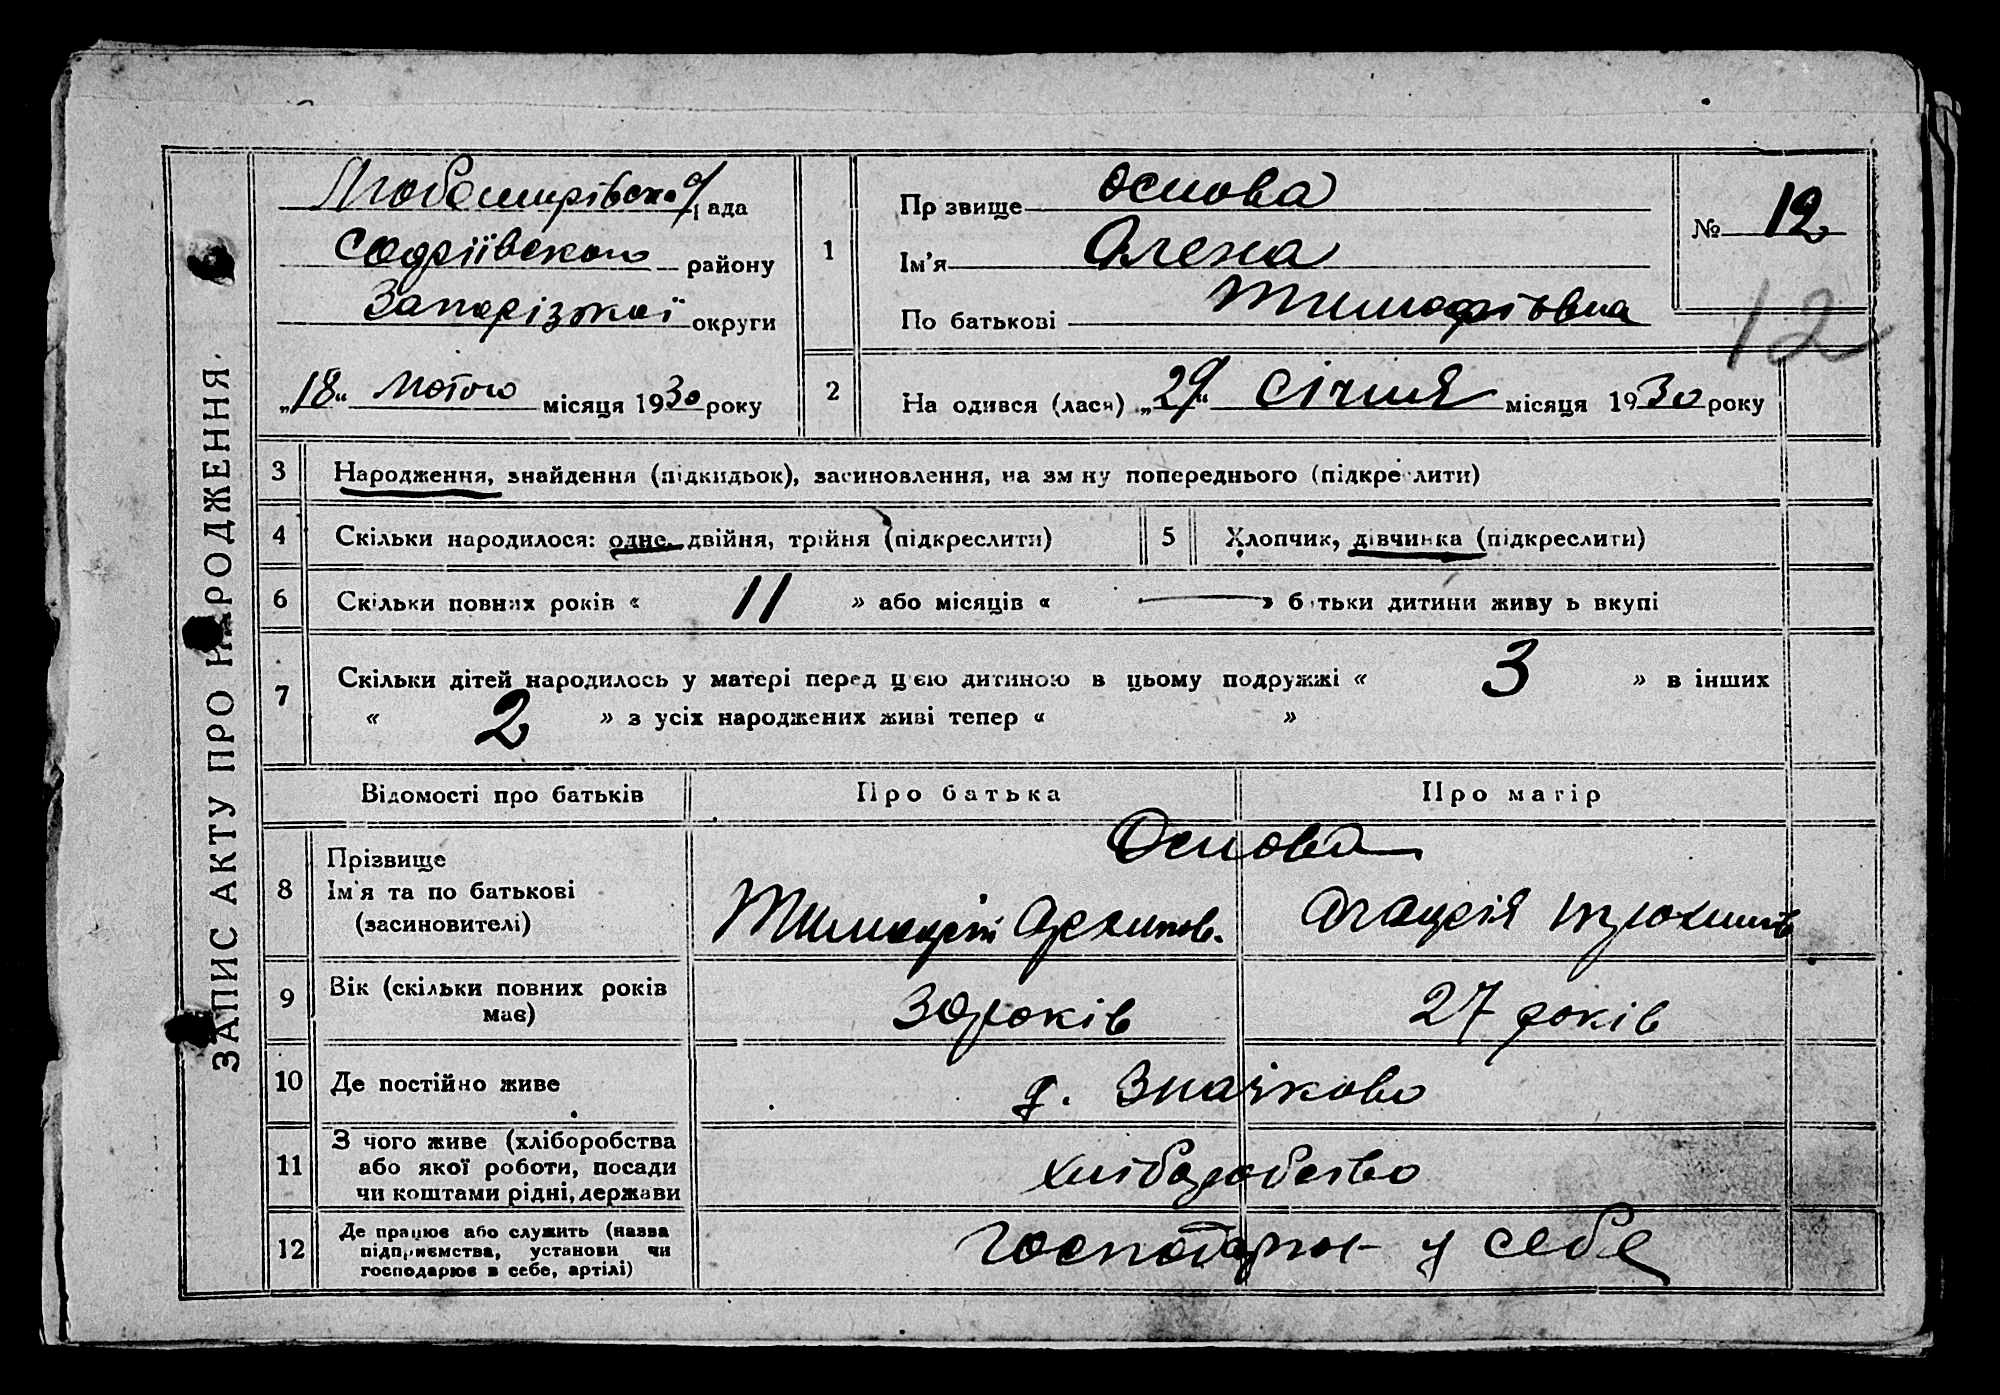 ЗАПИС АКТУ ПРО НАРОДЖЕННЯ.
Любомирівська рада
Софіївського району
Запорізької округи
„18“ Лютого місяця 1930 року
1
Пр звище Основа
Ім'я Олена
По батькові Тимофіївна
№ 12
12
2
На одився (лася) „29“ Січня місяця 1930 року
3 Народження, знайдення (підкидьок), засиновлення, на зм ну попереднього (підкреслити)
4 Скільки народилося: одне, двійня, трійня (підкреслити)
5 Хлопчик, дівчинка (підкреслити)
6 Скільки повних років « 11 » або місяців « — » б тьки дитини живу ь вкупі
7 Скільки дітей народилось у матері перед цією дитиною в цьому подружжі « 3 » в інших
« 2 » з усіх народжених живі тепер « »
Відомості про батьків Про батька Про матір
8 Прізвище
Ім'я та по батькові
(засиновителі)
Основа
Тимофій Архипов.
9 Вік (скільки повних років
має)
30 років 27 років
10 Де постійно живе
с. Значково
11 З чого живе (хліборобства
або якої роботи, посади
чи коштами рідні, держави
хліборобство
12 Де працює або служить (назва
підприємства, установи чи
господарює в себе, артілі)
господарює у себе